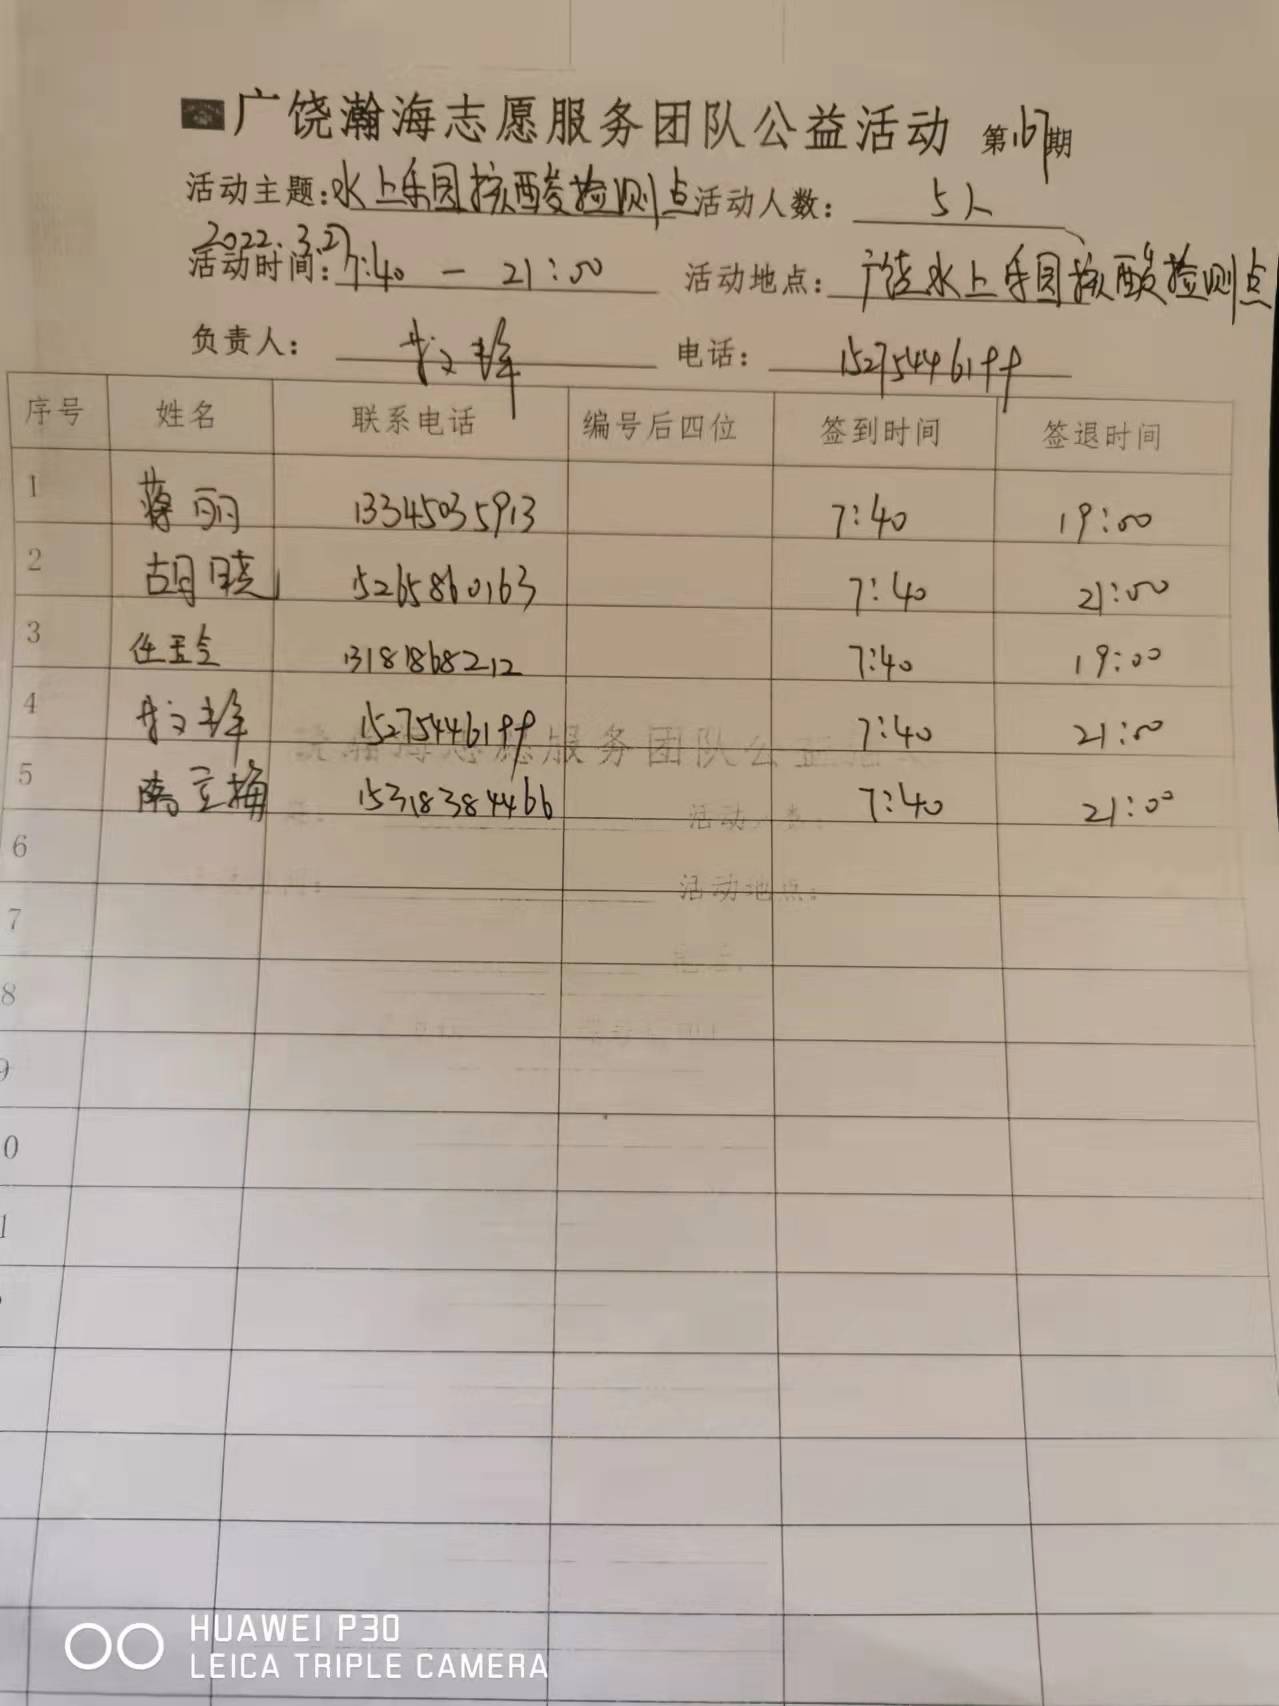 广饶瀚海志愿服务团队公益活动 第167期
活动主题: 水上乐园核酸检测点 活动人数: 5人
2022.3.27
活动时间: 7:40 — 21:00 活动地点: 广饶水上乐园核酸检测点
负责人: 电话: 152754461
序号 姓名 联系电话 编号后四位 签到时间 签退时间
1 蒋丽 13345035913 7:40 19:00
2 胡晓 15265860163 7:40 21:00
3 任玉 13181868212 7:40 19:00
4 152754461 7:40 21:00
5 立梅 15318384466 7:40 21:00
6
7
8
9
0
1
饶瀚海志愿服务团队公益活
活动人数:
活动地点:
HUAWEI P30
LEICA TRIPLE CAMERA